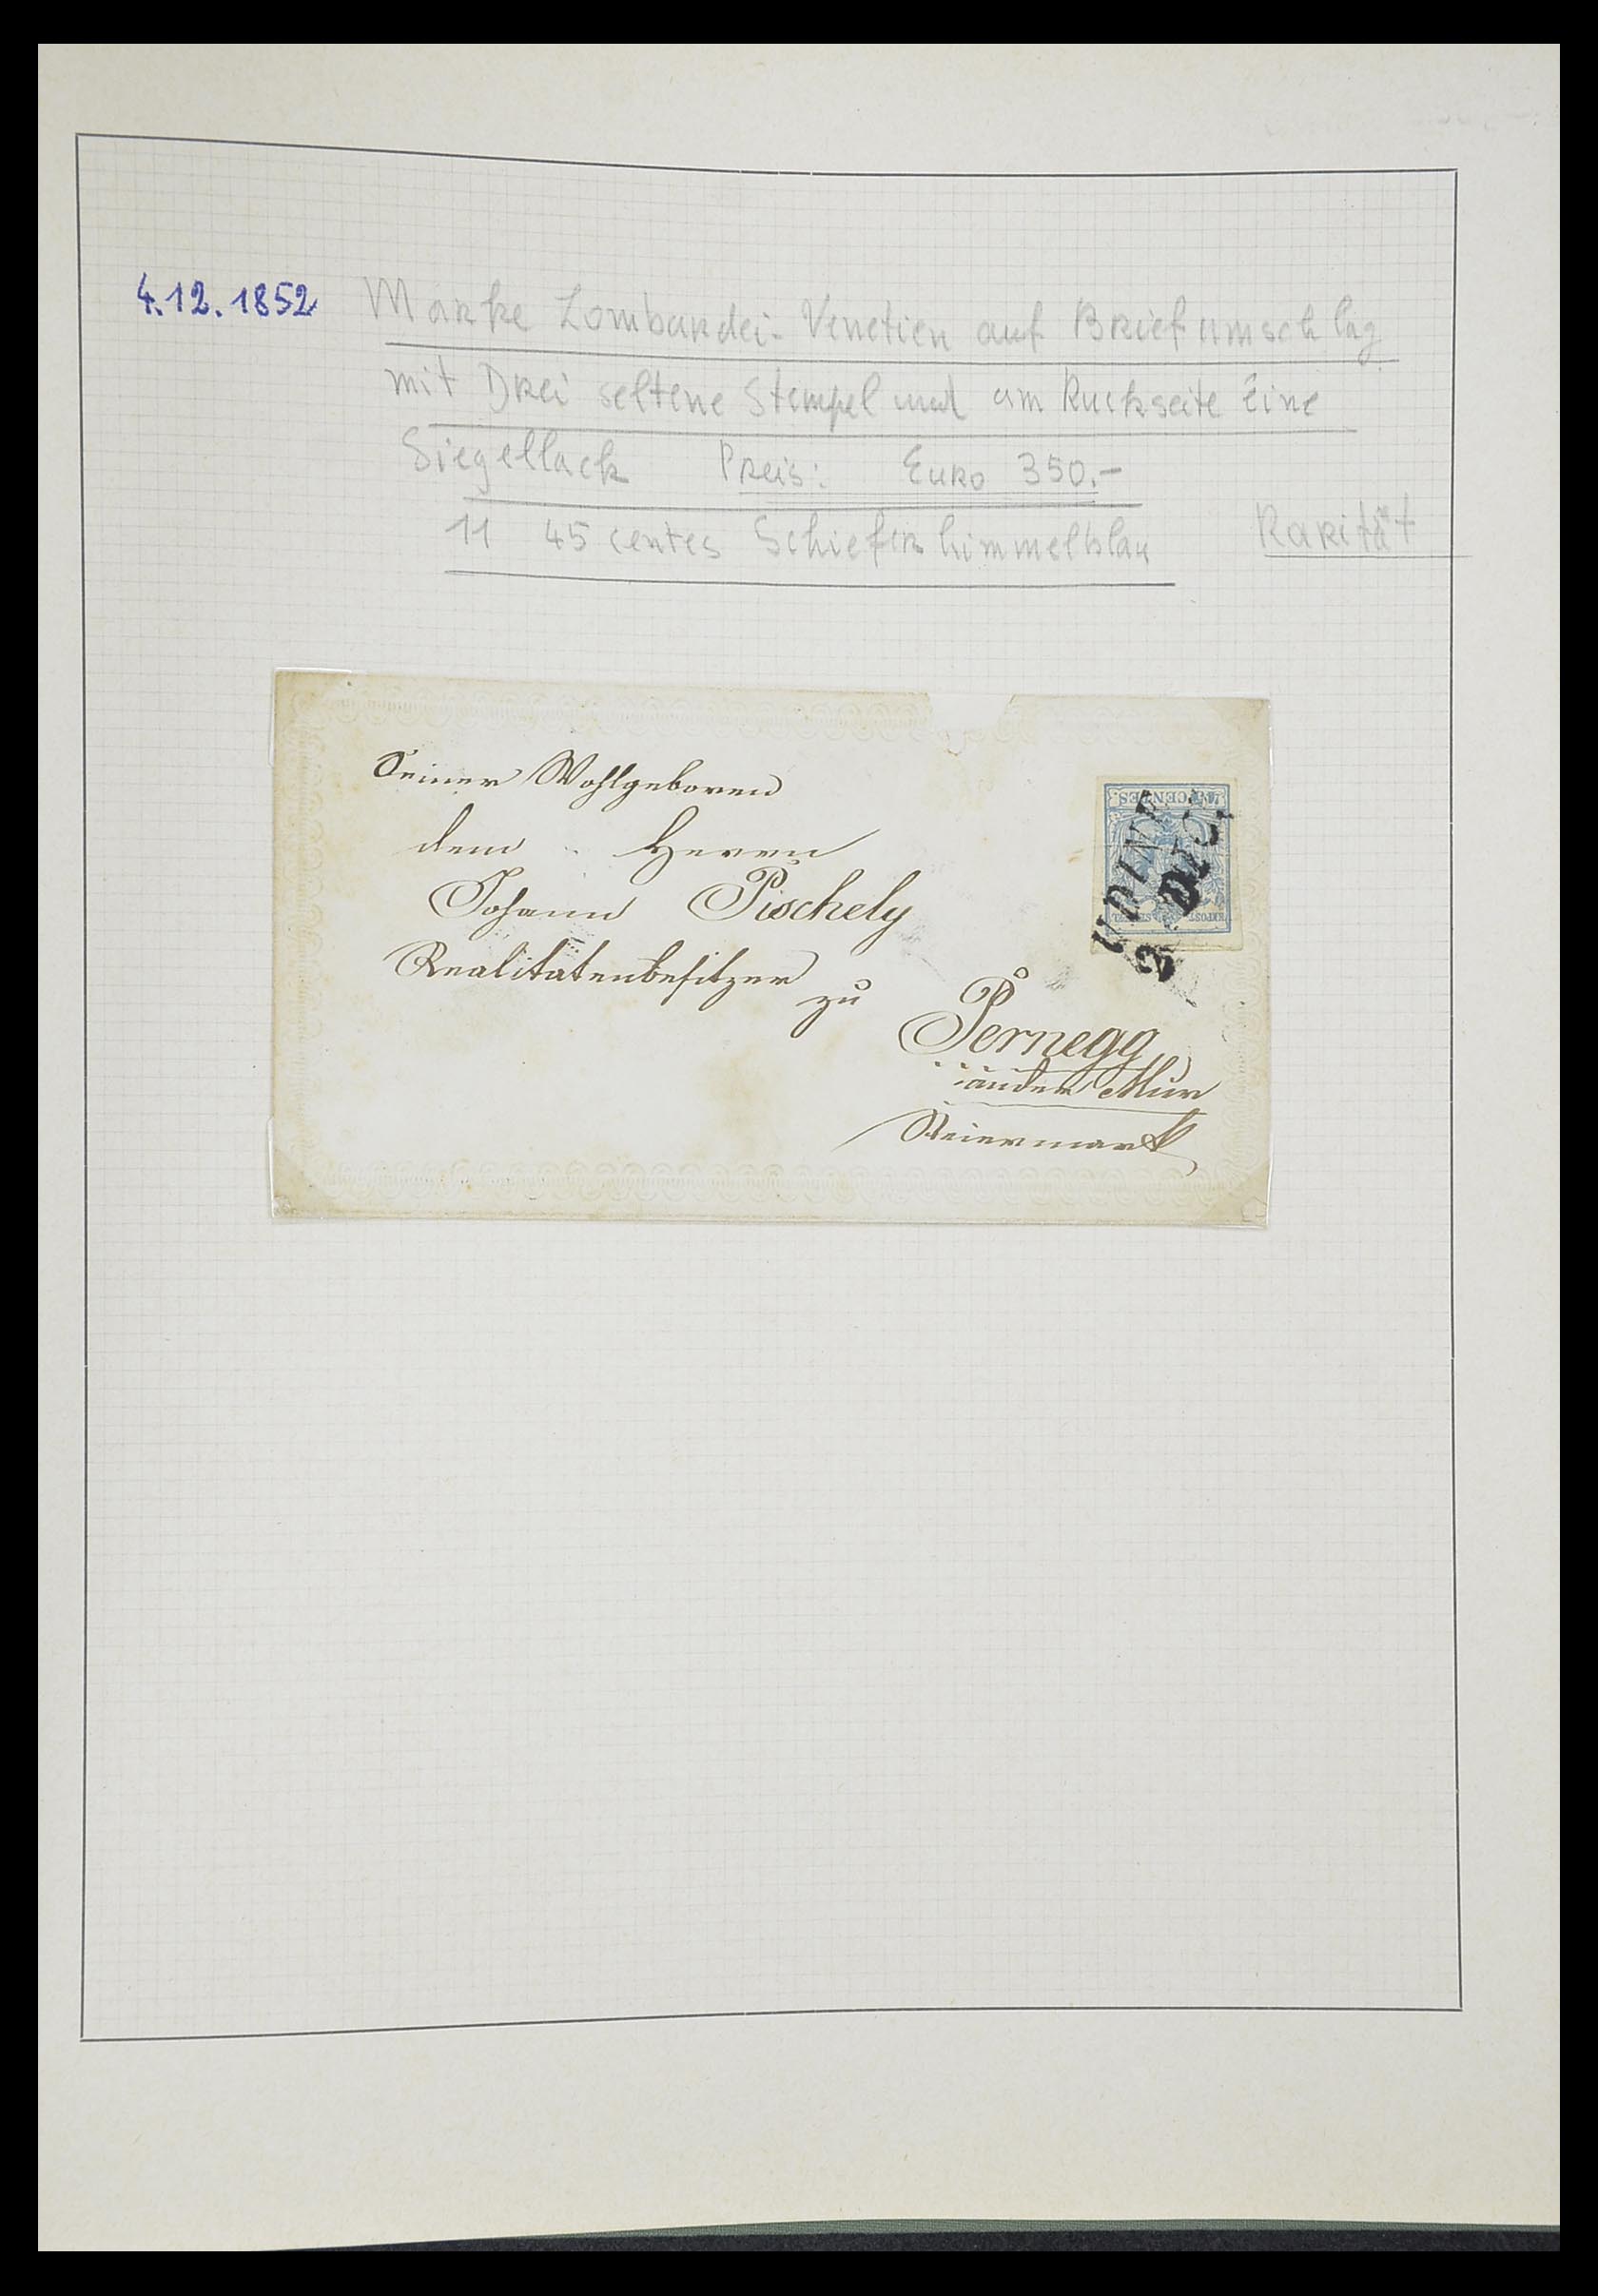 4.12.1852 Marke Lombardei-Venetien auf Briefumschlag
mit Drei seltene Stempel und am Ruckseite Eine
Siegellack Preis: Euro 350.-
11 45 centes Schiefer himmelblau Rarität
Seiner Wohlgeboren
dem Herrn
Johann Pischely
Realitätenbesitzer
zu Pernegg
an der Mur
Steiermark
CENTES
UDINE
2 DIC.